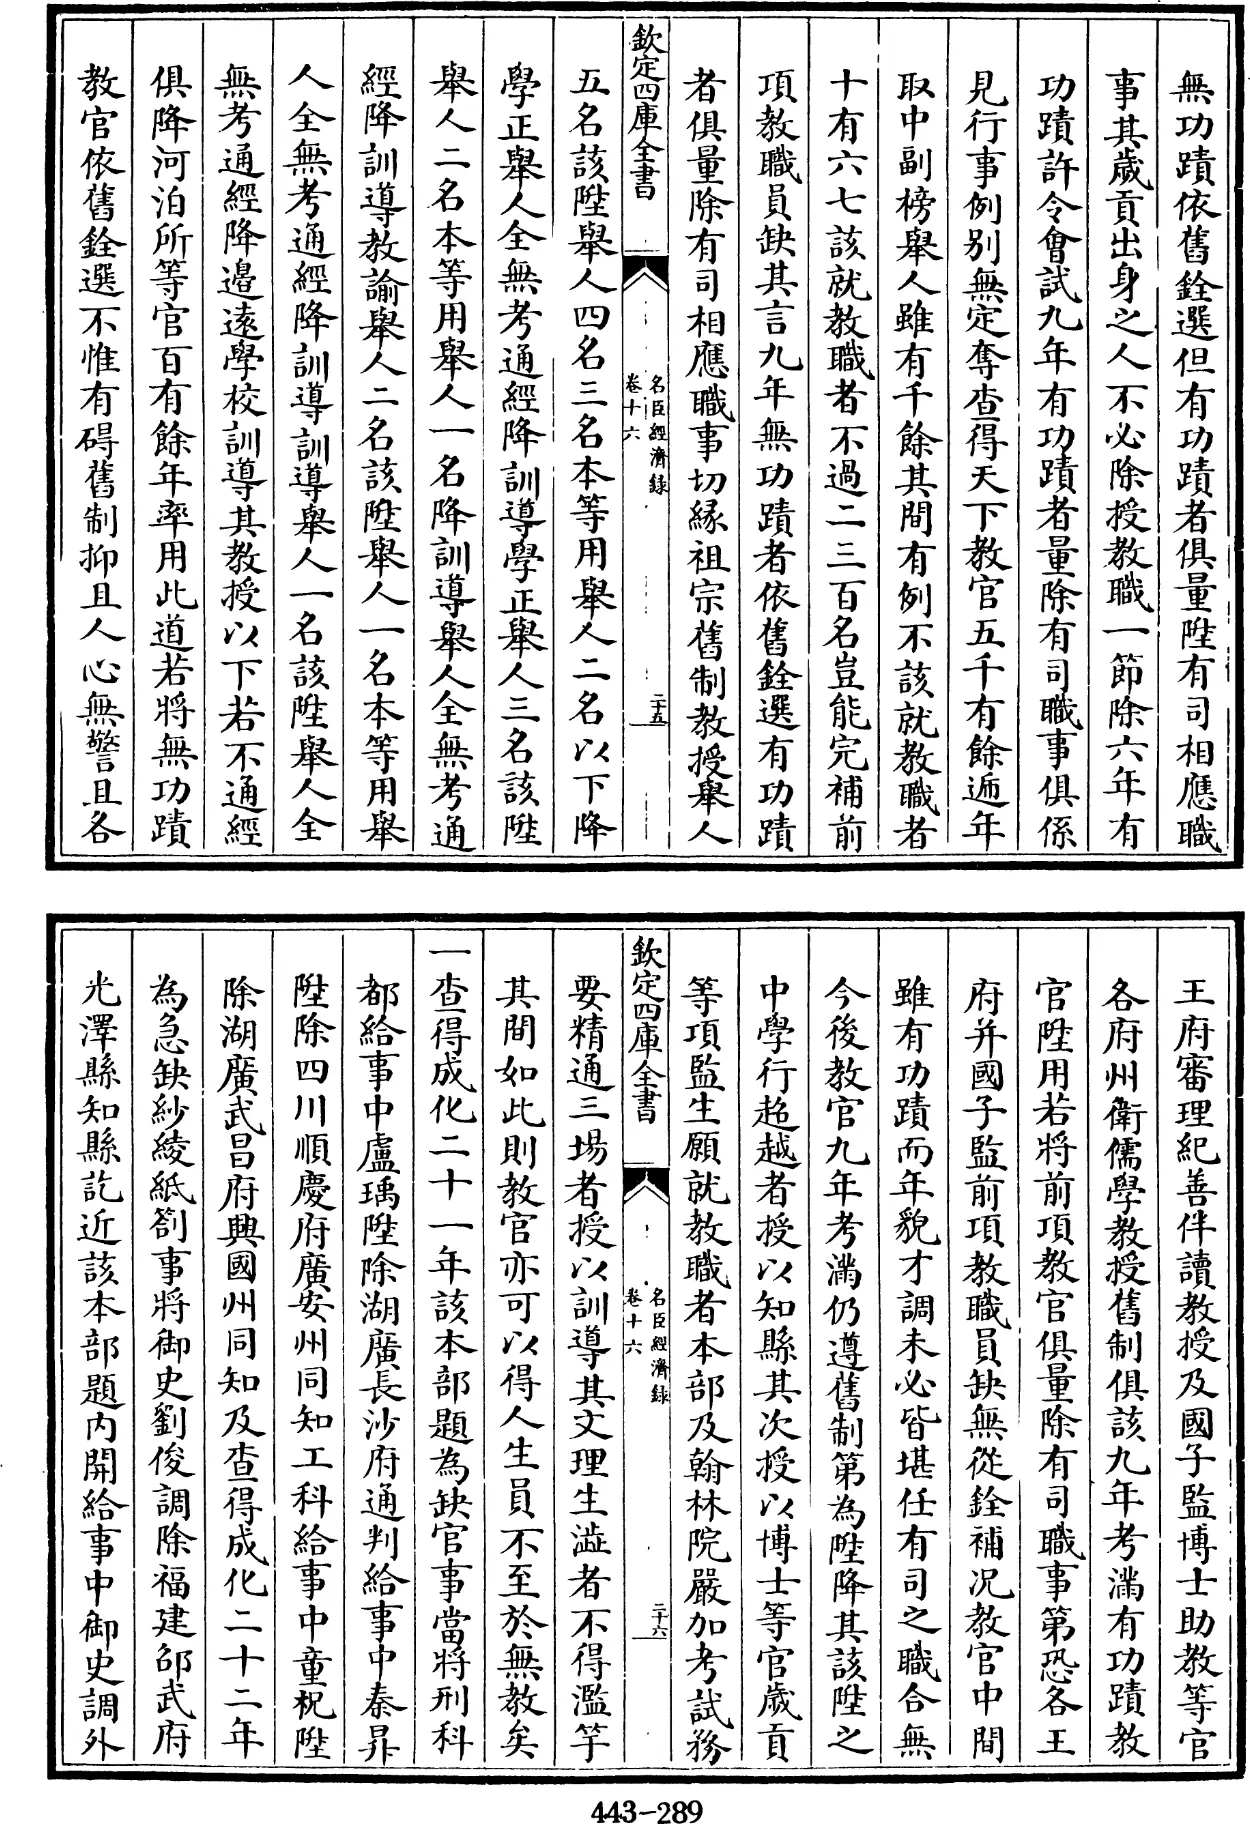 無功蹟依舊銓選但有功蹟者俱量陞有司相應職
事其歲貢出身之人不必除授教職一節除六年有
功蹟許令會試九年有功蹟者量除有司職事俱係
見行事例別無定奪查得天下教官五千有餘逓年
取中副榜舉人雖有千餘其間有例不該就教職者
十有六七該就教職者不過二三百名豈能完補前
項教職員缺其言九年無功蹟者依舊銓選有功蹟
者俱量除有司相應職事切緣祖宗舊制教授舉人
欽定四庫全書
名臣經濟録
卷十六
二十五
五名該陞舉人四名三名本等用舉人二名以下降
學正舉人全無考通經降訓導學正舉人三名該陞
舉人二名本等用舉人一名降訓導舉人全無考通
經降訓導教諭舉人二名該陞舉人一名本等用舉
人全無考通經降訓導訓導舉人一名該陞舉人全
無考通經降邊遠學校訓導其教授以下若不通經
俱降河泊所等官百有餘年率用此道若將無功蹟
教官依舊銓選不惟有碍舊制抑且人心無警且各
王府審理紀善伴讀教授及國子監博士助教等官
各府州衛儒學教授舊制俱該九年考滿有功蹟教
官陞用若將前項教官俱量除有司職事第恐各王
府并國子監前項教職員缺無從銓補况教官中間
雖有功蹟而年貌才調未必皆堪任有司之職合無
今後教官九年考滿仍遵舊制第為陞降其該陞之
中學行超越者授以知縣其次授以博士等官歲貢
等項監生願就教職者本部及翰林院嚴加考試務
欽定四庫全書
名臣經濟録
卷十六
二十六
要精通三場者授以訓導其文理生澁者不得濫竽
其間如此則教官亦可以得人生員不至於無教矣
一查得成化二十一年該本部題為缺官事當將刑科
都給事中盧瑀陞除湖廣長沙府通判給事中秦昇
陞除四川順慶府廣安州同知工科給事中童柷陞
除湖廣武昌府興國州同知及查得成化二十二年
為急缺紗綾紙劄事將御史劉俊調除福建邵武府
光澤縣知縣訖近該本部題內開給事中御史調外
443-289